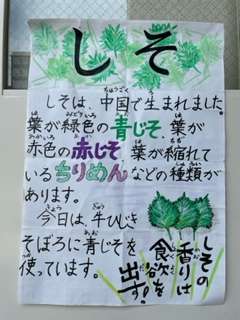 しそ
しそは、中国で生まれました。
葉が緑色の青じそ、葉が
赤色の赤じそ、葉が縮れて
いるちりめんなどの種類が
あります。
今日は、牛ひじき
そぼろに青じそを
使っています。
しその
香りは
食欲を
出す!